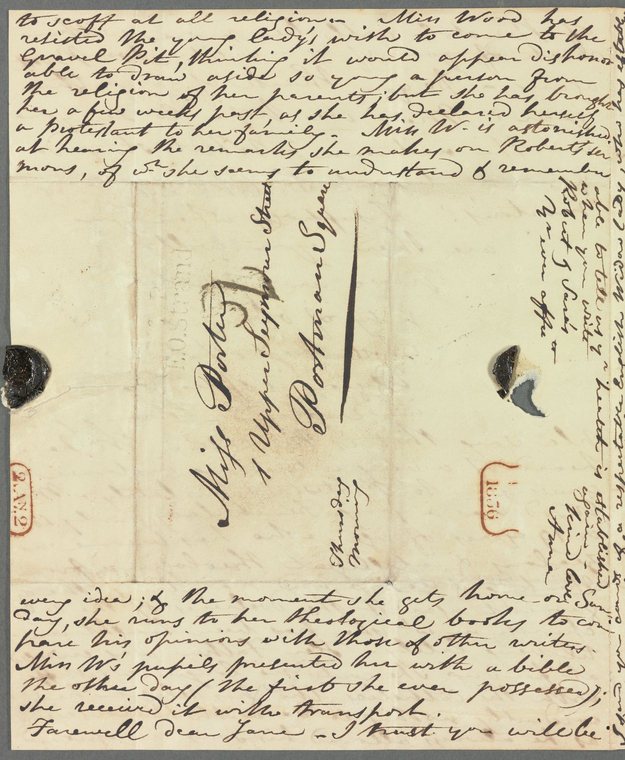 to scoff at all religion - Miss Wood has
resisted the young lady's wish to come to the
Gravel Pit, thinking it would appear dishonor
able to draw aside so young a person from
the religion of her parents; but she has brought
her a few weeks past, as she has declared herself
a protestant to her family. Miss W. is astonished
at hearing the remarks she makes on Robert's ser
mons, of wh. she seems to understand & remember
every idea; & the moment she gets home on Sun
day, she runs to her theological books to com
pare his opinions with those of other writers.
Miss W's pupils presented her with a bible
the other day (the first she ever possessed);
she received it with transport.
Farewell dear Jane - I trust you will be
able to tell us yr health is established
when you write again -
Robert J Sends kind love
Yr ever affte
Anna
Miss Porter
1 Upper Seymour Street
Portman Square
Thursday
Morning
2
2.AN.2
1836